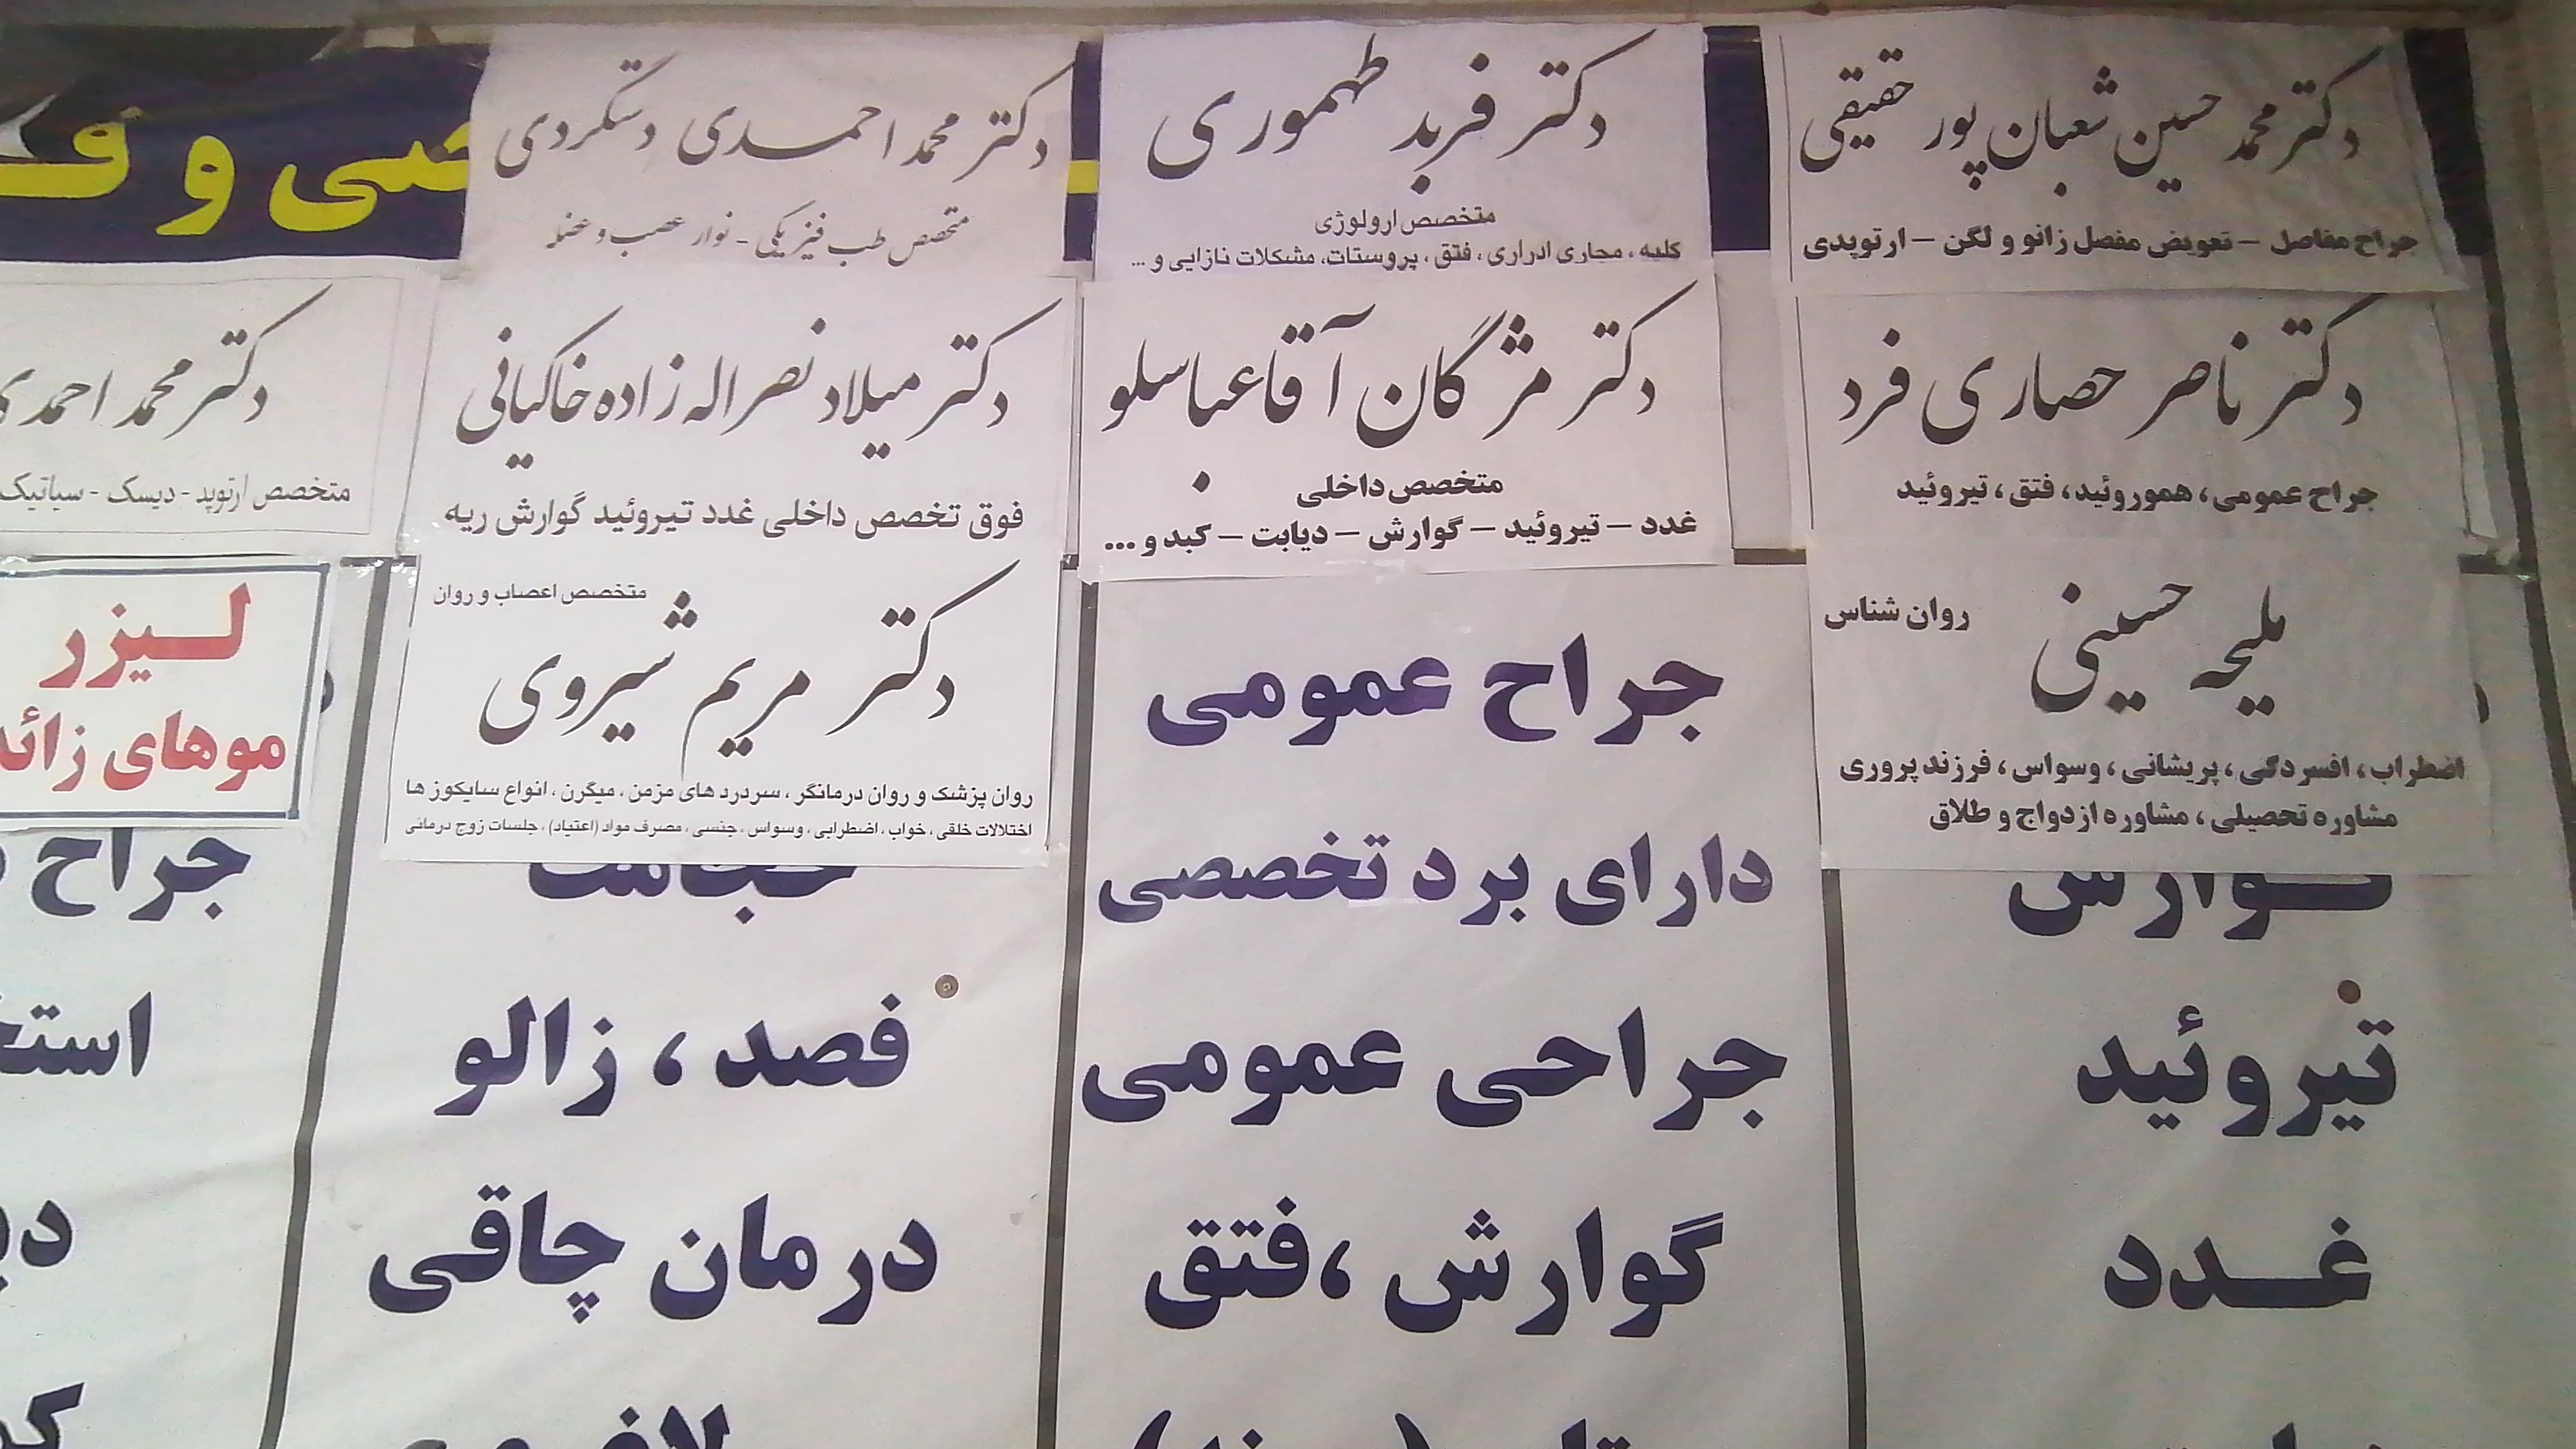 دکتر محمد حسین شعبان پور حقیقی
جراح مفاصل – تعویض مفصل زانو و لگن – ارتوپدی
دکتر ناصر حصاری فرد
جراح عمومی، هموروئید، فتق، تیروئید
ملیحه حسینی
روان شناس
اضطراب، افسردگی، پریشانی، وسواس، فرزند پروری
مشاوره تحصیلی، مشاوره ازدواج و طلاق
گوارش
تیروئید
غدد
دکتر فربد طهموری
متخصص ارولوژی
کلیه، مجاری ادراری، فتق، پروستات، مشکلات نازایی و ...
دکتر مژگان آقاعباسلو
متخصص داخلی
غدد – تیروئید – گوارش – دیابت – کبد و ...
جراح عمومی
دارای برد تخصصی
جراحی عمومی
گوارش، فتق
دکتر محمد احمدی دستگردی
متخصص طب فیزیکی - نوار عصب و عضله
دکتر میلاد نصراله زاده خاکیانی
فوق تخصص داخلی غدد تیروئید گوارش ریه
متخصص اعصاب و روان
دکتر مریم شیروی
روان پزشک و روان درمانگر، سردرد های مزمن، میگرن، انواع سایکوز ها
اختلالات خلقی، خواب، اضطرابی، وسواس، جنسی، مصرف مواد (اعتیاد)، جلسات زوج درمانی
حجامت
فصد، زالو
درمان چاقی
و
دکتر محمد احمدی
متخصص ارتوپد - دیسک - سیاتیک
لیزر
موهای زائد
جراح